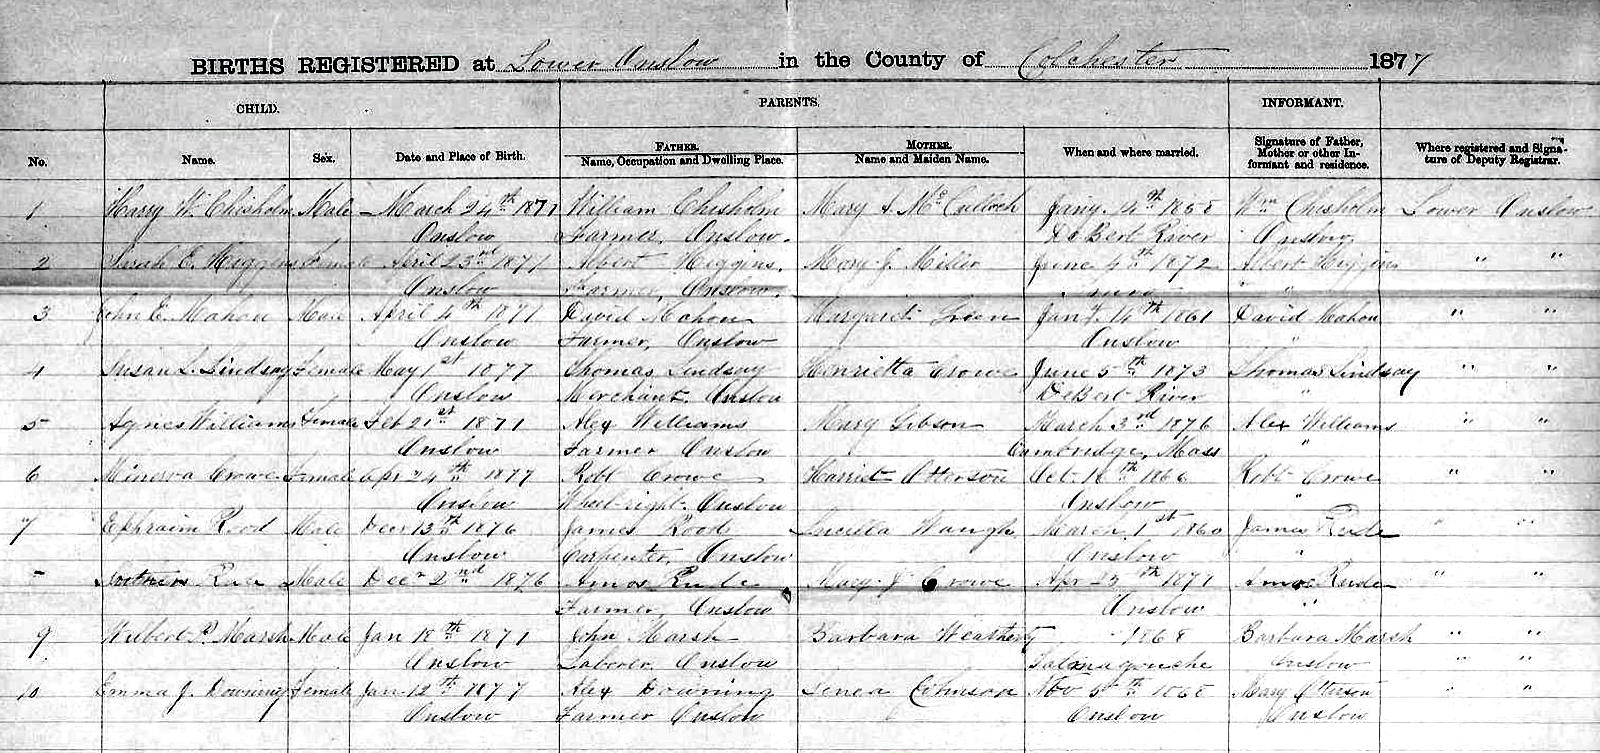 BIRTHS REGISTERED at Lower Onslow in the County of Colchester 1877
CHILD. PARENTS. INFORMANT.
No. Name. Sex. Date and Place of Birth. FATHER. Name, Occupation and Dwelling Place. MOTHER. Name and Maiden Name. When and where married. Signature of Father, Mother or other Informant and residence. Where registered and Signature of Deputy Registrar.
1 Harry W. Chisholm Male March 24th 1877 William Chisholm Mary A. McCulloch Jany 14th 1868 Wm Chisholm Lower Onslow
Onslow Farmer, Onslow. DeBert River Onslow
2 Sarah E. Higgins Female April 23rd 1877 Albert Higgins. Mary J. Miller June 4th 1872 Albert Higgins " "
Onslow Farmer, Onslow. "
3 John E. Mahon Male April 4th 1877 David Mahon Margaret Jany 14th 1861 David Mahon " "
Onslow Farmer, Onslow Onslow "
4 Susan L. Lindsay Female May 1st 1877 Thomas Lindsay Henrietta Crowe June 5th 1873 Thomas Lindsay " "
Onslow Merchant, Onslow DeBert River
5 Agnes Williams Female Feb 21st 1877 Alex Williams Mary Gibson March 3rd 1876 Alex Williams " "
Onslow Farmer Onslow Cambridge, Mass "
6 Minerva Crowe Female Apr 24th 1877 Robt Crowe Harriet Otterson Oct 1866 Robt Crowe " "
Onslow Wheelright Onslow Onslow "
7 Ephraim Rood Male Decr 13th 1876 James Rood Lucilla Waugh March 1st 1860 James Rude " "
Onslow Carpenter, Onslow Onslow "
Male Decr 2nd 1876 Amos Rude Mary J Crowe Apr 1877 Amos Rude " "
Farmer, Onslow Onslow "
9 Wilbert P. Marsh Male Jan 18th 1877 John Marsh Barbara 1868 Barbara Marsh " "
Onslow Laborer, Onslow Tatmagouche Onslow " "
10 Emma J. Downing Female Jan 12th 1877 Alex Downing Johnson Nov 5th 1868 Mary Otterson " "
Onslow Farmer Onslow Onslow Onslow